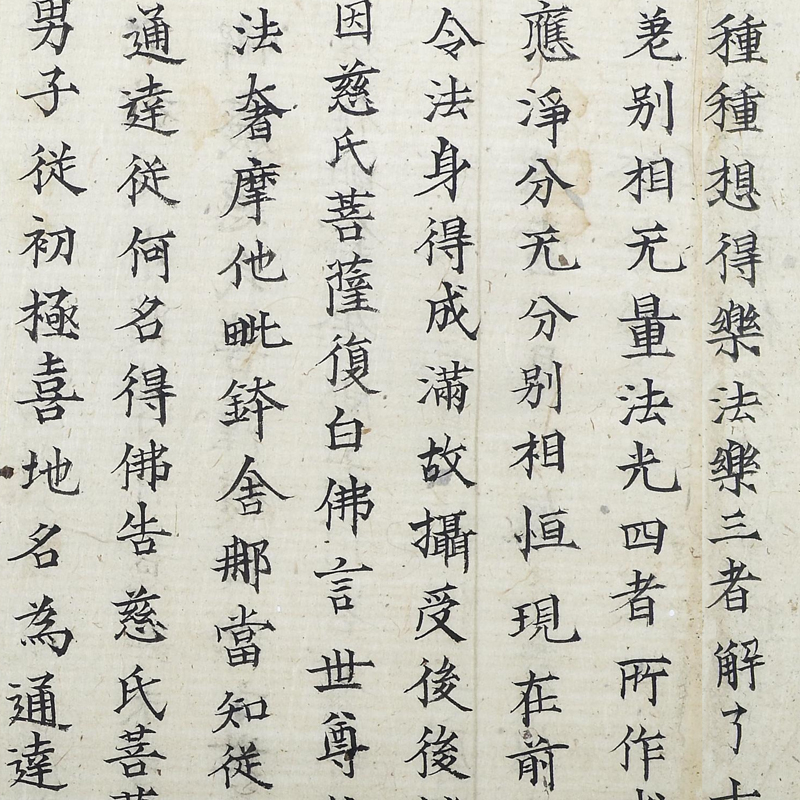 種種想得樂法樂三者解了十
差别相无量法光四者所作成
應淨分无分别相恒現在前
令法身得成滿故攝受後後
因慈氏菩薩復白佛言世尊
法奢摩他毗鉢舍那當知從
通達從何名得佛告慈氏菩薩
男子從初極喜地名為通達